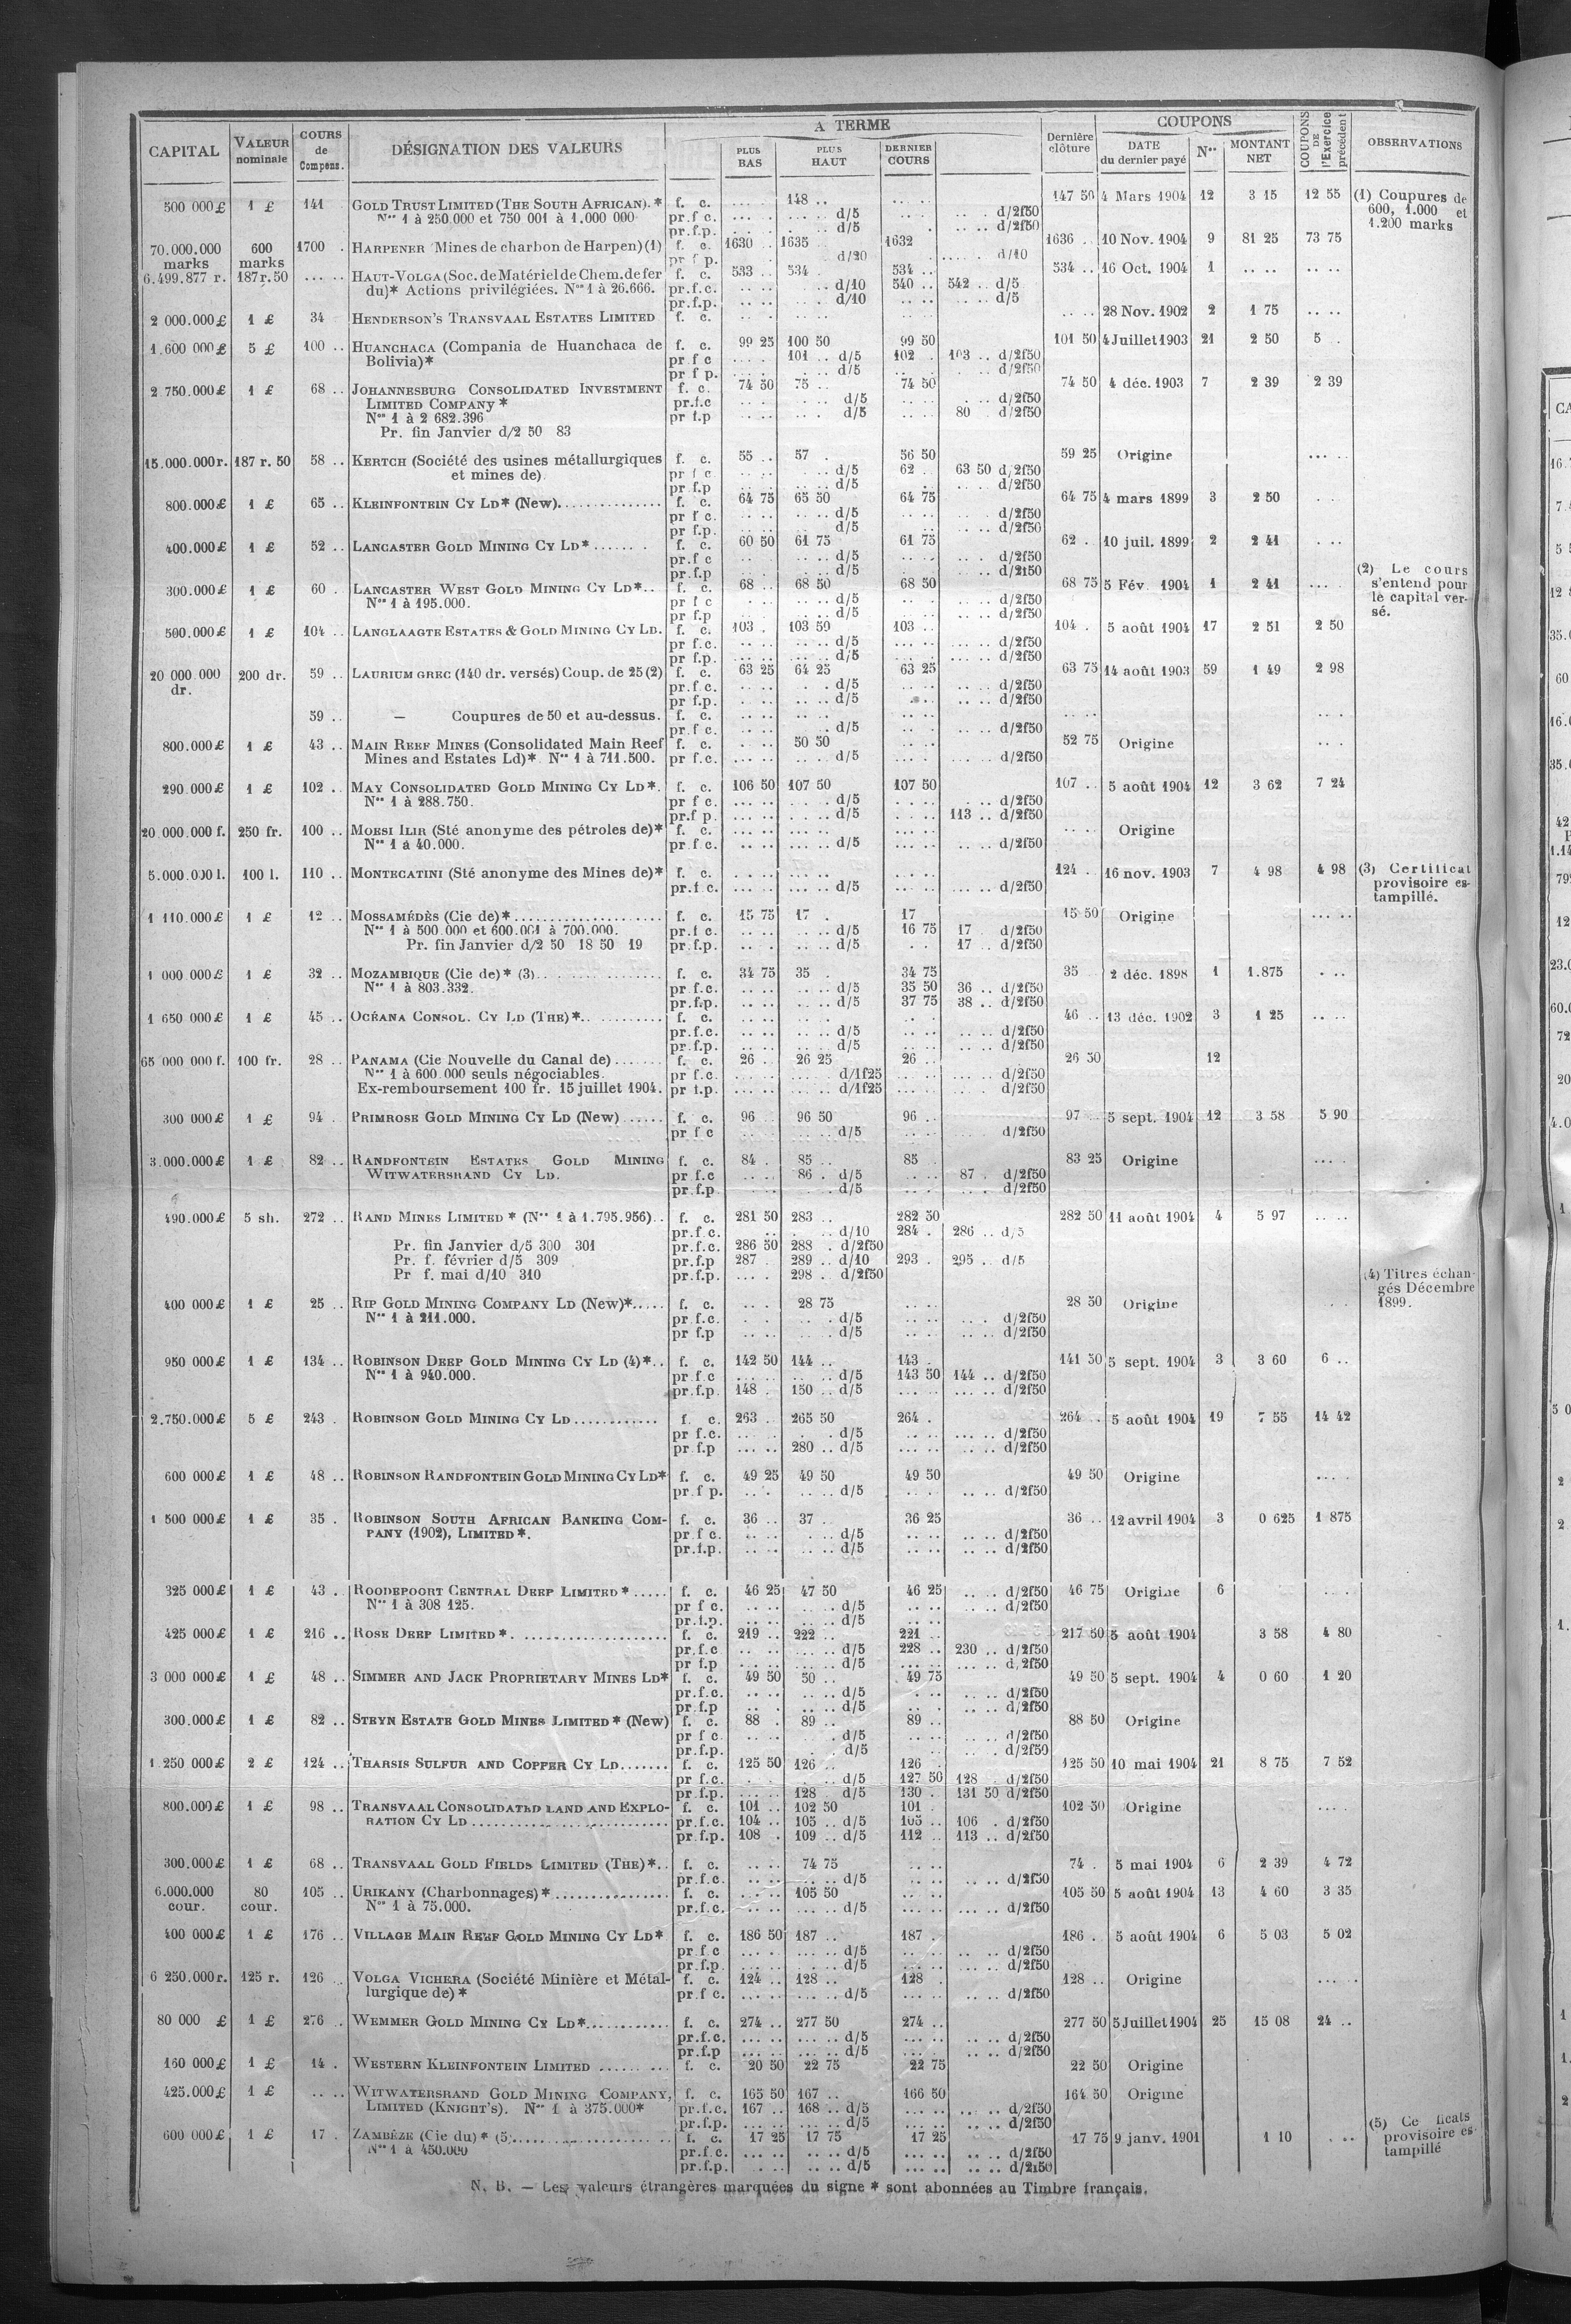 CAPITAL | VALEUR nominale | COURS de Compens. | DÉSIGNATION DES VALEURS | A TERME | PLUS BAS | PLUS HAUT | DERNIER COURS | Dernière clôture | COUPONS | DATE du dernier payé | Nos | MONTANT NET | COUPONS DE l'Exercice précédent | OBSERVATIONS
500 000 £ 1 £ 141 GOLD TRUST LIMITED (THE SOUTH AFRICAN).* f. c. 148 .. 147 50 4 Mars 1904 12 3 15 12 55 (1) Coupures de
Nos 1 à 250.000 et 750 001 à 1.000 000 pr.f c. d/5 d/2f50 600, 1.000 et
pr.f.p. d/5 d/2f50 1.200 marks
70.000.000 600 1700 . HARPENER Mines de charbon de Harpen) (1) f. c. 1630 .. 1635 1632 1636 .. 10 Nov. 1904 9 81 25 73 75
marks marks pr f p. d/20 d/10
6.499.877 r. 187 r. 50 HAUT-VOLGA (Soc. de Matériel de Chem. de fer f. c. 533 .. 534 . 534 .. 534 .. 16 Oct. 1904 1
du)* Actions privilégiées. Nos 1 à 26.666. pr.f.c. d/10 540 .. 542 .. d/5
pr.f.p. d/10 d/5
2 000.000 £ 1 £ 34 HENDERSON'S TRANSVAAL ESTATES LIMITED f. c. 28 Nov. 1902 2 1 75
1.600 000 £ 5 £ 100 .. HUANCHACA (Compania de Huanchaca de f. c. 99 25 100 50 99 50 101 50 4 Juillet 1903 21 2 50 5 .
Bolivia)* pr f c 101 .. d/5 102 . 103 .. d/2f50
pr f p. d/5 d/2f50
2 750.000 £ 1 £ 68 .. JOHANNESBURG CONSOLIDATED INVESTMENT f. c. 74 50 75 .. 74 50 74 50 4 déc. 1903 7 2 39 2 39
LIMITED COMPANY * pr.f.c d/5 d/2f50
Nos 1 à 2 682.396 pr f.p d/5 80 d/2f50
Pr. fin Janvier d/2 50 83
15.000.000 r. 187 r. 50 58 .. KERTCH (Société des usines métallurgiques f. c. 55 .. 57 . 56 50 59 25 Origine
et mines de) pr f c d/5 62 . 63 50 d/2f50
pr.f.p d/5 d/2f50
800.000 £ 1 £ 65 .. KLEINFONTEIN CY LD* (New) f. c. 64 75 65 50 64 75 64 75 4 mars 1899 3 2 50
pr f c. d/5 d/2f50
pr f.p. d/5 d/2f50
400.000 £ 1 £ 52 .. LANCASTER GOLD MINING CY LD* f. c. 60 50 61 75 61 75 62 . 10 juil. 1899 2 2 41
pr.f c d/5 d/2f50
pr.f.p d/5 d/2f50
300.000 £ 1 £ 60 . LANCASTER WEST GOLD MINING CY LD*.. f. c. 68 68 50 68 50 68 75 5 Fév. 1904 1 2 41 (2) Le cours s'entend pour le capital versé.
Nos 1 à 195.000. pr f c d/5 d/2f50
pr f.p d/5 d/2f50
500.000 £ 1 £ 104 .. LANGLAAGTE ESTATES & GOLD MINING CY LD. f. c. 103 . 103 50 103 .. 104 . 5 août 1904 17 2 51 2 50
pr f.c. d/5 d/2f50
pr f.p. d/5 d/2f50
20 000 000 200 dr. 59 .. LAURIUM GREC (140 dr. versés) Coup. de 25 (2) f. c. 63 25 64 25 63 25 63 75 14 août 1903 59 1 49 2 98
dr. pr.f c. d/5 d/2f50
pr f.p. d/5 d/2f50
59 .. — Coupures de 50 et au-dessus. f. c.
pr.f c. d/5 d/2f50
800.000 £ 1 £ 43 .. MAIN REEF MINES (Consolidated Main Reef f. c. 50 50 52 75 Origine
Mines and Estates Ld)* Nos 1 à 711.500. pr f.c. d/5 d/2f50
290.000 £ 1 £ 102 .. MAY CONSOLIDATED GOLD MINING CY LD*. f. c. 106 50 107 50 107 50 107 .. 5 août 1904 12 3 62 7 24
Nos 1 à 288.750. pr f c. d/5 d/2f50
pr.f p. d/5 113 .. d/2f50
20 000.000 f. 250 fr. 100 .. MOESI ILIR (Sté anonyme des pétroles de)* f. c. Origine
Nos 1 à 40.000. pr.f c. d/5 d/2f50
5.000.000 l. 100 l. 110 .. MONTECATINI (Sté anonyme des Mines de)* f. c. 124 .. 16 nov. 1903 7 4 98 4 98 (3) Certificat
pr.f c. d/5 d/2f50 provisoire estampillé.
1 110.000 £ 1 £ 12 .. MOSSAMÉDÈS (Cie de)* f. c. 15 75 17 . 17 15 50 Origine
Nos 1 à 500.000 et 600.001 à 700.000. pr.f c. d/5 16 75 17 . d/2f50
Pr. fin Janvier d/2 50 18 50 19 pr.f.p. d/5 17 .. d/2f50
1 000 000 £ 1 £ 32 .. MOZAMBIQUE (Cie de)* (3) f. c. 34 75 35 . 34 75 35 2 déc. 1898 1 1.875
Nos 1 à 803.332. pr f.c. d/5 35 50 36 .. d/2f50
pr.f.p. d/5 37 75 38 .. d/2f50
1 650 000 £ 1 £ 45 .. OCÉANA CONSOL. CY LD (THE)* f. c. 46 .. 13 déc. 1902 3 1 25
pr.f.c. d/5 d/2f50
pr.f.p. d/5 d/2f50
65 000 000 f. 100 fr. 28 .. PANAMA (Cie Nouvelle du Canal de) f. c. 26 .. 26 25 26 .. 26 50 12
Nos 1 à 600.000 seuls négociables. pr f.c. d/1f25 d/2f50
Ex-remboursement 100 fr. 15 juillet 1904. pr f.p. d/1f25 d/2f50
300 000 £ 1 £ 94 . PRIMROSE GOLD MINING CY LD (New) f. c. 96 96 50 96 .. 97 .. 5 sept. 1904 12 3 58 5 90
pr f c d/5 d/2f50
3.000.000 £ 1 £ 82 .. RANDFONTEIN ESTATES GOLD MINING f. c. 84 . 85 .. 85 . 83 25 Origine
WITWATERSRAND CY LD. pr f.c 86 . d/5 87 . d/2f50
pr.f.p d/5 d/2f50
490.000 £ 5 sh. 272 .. RAND MINES LIMITED * (Nos 1 à 1.795.956).. f. c. 281 50 283 .. 282 50 282 50 11 août 1904 4 5 97
pr.f.c. d/10 284 . 286 .. d/5
Pr. fin Janvier d/5 300 301 pr.f.c. 286 50 288 . d/2f50
Pr. f. février d/5 309 pr.f.p 287 . 289 .. d/10 293 . 295 .. d/5
Pr f. mai d/10 310 pr.f.p. 298 . d/2f50 (4) Titres échangés Décembre 1899.
400 000 £ 1 £ 25 .. RIP GOLD MINING COMPANY LD (New)* f. c. 28 75 28 50 Origine
Nos 1 à 211.000. pr f.c. d/5 d/2f50
pr f.p d/5 d/2f50
950 000 £ 1 £ 134 .. ROBINSON DEEP GOLD MINING CY LD (4)*.. f. c. 142 50 144 .. 143 . 141 50 5 sept. 1904 3 3 60 6 ..
Nos 1 à 940.000. pr f c d/5 143 50 144 .. d/2f50
pr.f.p. 148 . 150 .. d/5 d/2f50
2.750.000 £ 5 £ 243 . ROBINSON GOLD MINING CY LD f. c. 263 .. 265 50 264 . 264 .. 5 août 1904 19 7 55 14 42
pr f.c. d/5 d/2f50
pr f.p 280 .. d/5 d/2f50
600 000 £ 1 £ 48 .. ROBINSON RANDFONTEIN GOLD MINING CY LD* f. c. 49 25 49 50 49 50 49 50 Origine
pr.f p. d/5 d/2f50
1 500 000 £ 1 £ 35 . ROBINSON SOUTH AFRICAN BANKING COM- f. c. 36 .. 37 .. 36 25 36 .. 12 avril 1904 3 0 625 1 875
PANY (1902), LIMITED *. pr f c. d/5 d/2f50
pr.f.p. d/5 d/2f50
325 000 £ 1 £ 43 .. ROODEPOORT CENTRAL DEEP LIMITED * f. c. 46 25 47 50 46 25 d/2f50 46 75 Origine 6
Nos 1 à 308 125. pr f c. d/5 d/2f50
pr.f.p. d/5
425 000 £ 1 £ 216 .. ROSE DEEP LIMITED *. f. c. 219 .. 222 .. 221 .. 217 50 5 août 1904 3 58 4 80
pr.f.c d/5 228 .. 230 .. d/2f50
pr f.p d/5 d/2f50
3 000 000 £ 1 £ 48 .. SIMMER AND JACK PROPRIETARY MINES LD* f. c. 49 50 50 .. 49 75 49 50 5 sept. 1904 4 0 60 1 20
pr.f.c. d/5 d/2f50
pr.f.p d/5 d/2f50
300.000 £ 1 £ 82 .. STEYN ESTATE GOLD MINES LIMITED * (New) f. c. 88 . 89 .. 89 .. 88 50 Origine
pr f c d/5 d/2f50
pr.f.p. d/5 d/2f50
1 250 000 £ 2 £ 124 .. THARSIS SULFUR AND COPPER CY LD f. c. 125 50 126 .. 126 . 125 50 10 mai 1904 21 8 75 7 52
pr f.c. d/5 127 50 128 . d/2f50
pr.f.p. 128 . d/5 130 . 131 50 d/2f50
800.000 £ 1 £ 98 .. TRANSVAAL CONSOLIDATED LAND AND EXPLO- f. c. 101 .. 102 50 101 . 102 50 Origine
RATION CY LD pr.f.c. 104 .. 105 .. d/5 105 .. 106 . d/2f50
pr.f.p. 108 . 109 .. d/5 112 .. 113 .. d/2f50
300.000 £ 1 £ 68 .. TRANSVAAL GOLD FIELDS LIMITED (THE)*.. f. c. 74 75 74 . 5 mai 1904 6 2 39 4 72
pr.f.c. d/5 d/2f50
6.000.000 80 105 .. URIKANY (Charbonnages)* f. c. 105 50 105 50 5 août 1904 13 4 60 3 35
cour. cour. Nos 1 à 75.000. pr.f.c. d/5 d/2f50
400 000 £ 1 £ 176 .. VILLAGE MAIN REEF GOLD MINING CY LD* f. c. 186 50 187 .. 187 . 186 . 5 août 1904 6 5 03 5 02
pr.f c d/5 d/2f50
pr.f.p. d/5 d/2f50
6 250.000 r. 125 r. 126 .. VOLGA VICHERA (Société Minière et Métal- f. c. 124 .. 128 .. 128 . 128 .. Origine
lurgique de)* pr.f c. d/5 d/2f50
80 000 £ 1 £ 276 .. WEMMER GOLD MINING CY LD* f. c. 274 .. 277 50 274 .. 277 50 5 Juillet 1904 25 15 08 24 ..
pr.f.c. d/5 d/2f50
pr.f.p d/5 d/2f50
160 000 £ 1 £ 14 . WESTERN KLEINFONTEIN LIMITED f. c. 20 50 22 75 22 75 22 50 Origine
425.000 £ 1 £ WITWATERSRAND GOLD MINING COMPANY, f. c. 165 50 167 .. 166 50 164 50 Origine
LIMITED (KNIGHT'S). Nos 1 à 375.000* pr.f.c. 167 .. 168 .. d/5 d/2f50
pr.f.p. d/5 d/2f50
600 000 £ 1 £ 17 . ZAMBÈZE (Cie du)* (5) f. c. 17 25 17 75 17 25 17 75 9 janv. 1901 1 10 (5) Ce ficats
Nos 1 à 450.000 pr.f.c. d/5 d/2f50 provisoire es-
pr.f.p. d/5 d/2f50 tampillé
N. B. — Les valeurs étrangères marquées du signe * sont abonnées au Timbre français.